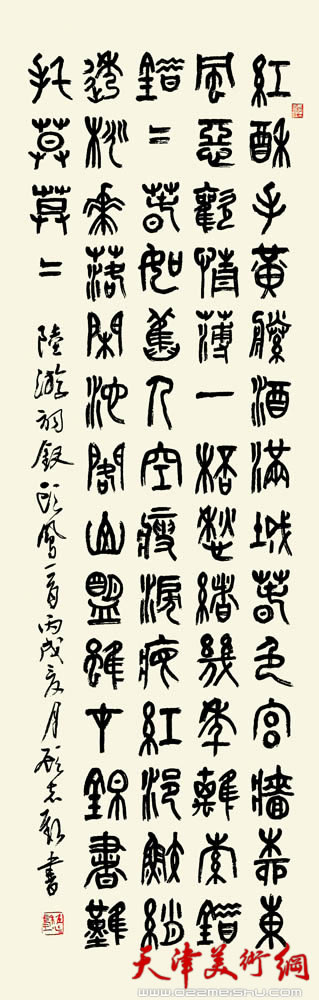 紅酥手黃縢酒滿城春色宮牆柳東
風惡歡情薄一桮愁緒幾年離索錯
錯〓春如舊人空瘦淚痕紅浥鮫綃
透桃花落閑池閣山盟雖在錦書難
托莫莫〓
陸游詞釵頭鳳一首丙戌夏月顧志新書
天津美術網
www.022meishu.com